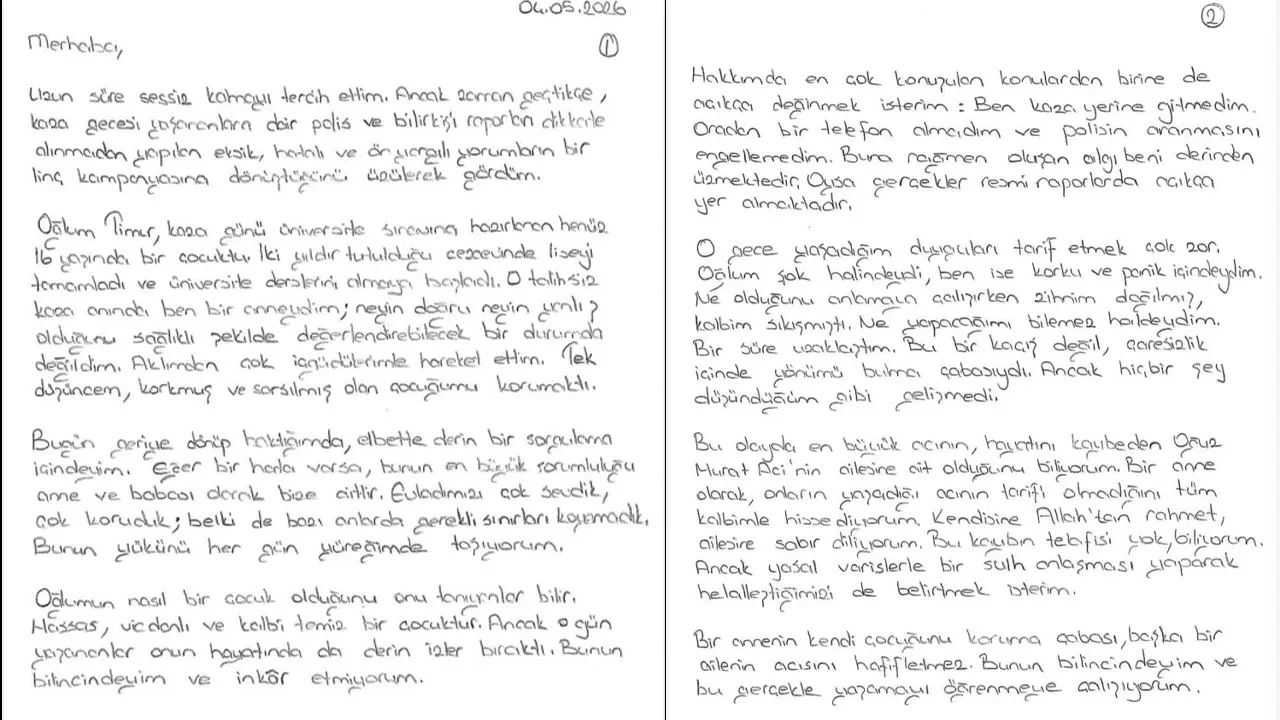 04.05.2026
①
Merhaba,
Uzun süre sessiz kalmayı tercih ettim. Ancak zaman geçtikçe,
kaza gecesi yaşananlara dair polis ve bilirkişi raporları dikkate
alınmadan yapılan eksik, hatalı ve önyargılı yorumların bir
linç kampanyasına dönüştüğünü üzülerek gördüm.
Oğlum Timur, kaza günü üniversite sınavına hazırlanan henüz
16 yaşında bir çocuktu. İki yıldır tutulduğu cezaevinde liseyi
tamamladı ve üniversite derslerini almaya başladı. O talihsiz
kaza anında ben bir anneydim; neyin doğru neyin yanlış
olduğunu sağlıklı şekilde değerlendirebilecek bir durumda
değildim. Aklımdan çok içgüdülerimle hareket ettim. Tek
düşüncem, korkmuş ve sarsılmış olan çocuğumu korumaktı.
Bugün geriye dönüp baktığımda, elbette derin bir sorgulama
içindeyim. Eğer bir hata varsa, bunun en büyük sorumluluğu
anne ve babası olarak bize aittir. Evladımızı çok sevdik,
çok koruduk; belki de bazı anlarda gerekli sınırları koyamadık.
Bunun yükünü her gün yüreğimde taşıyorum.
Oğlumun nasıl bir çocuk olduğunu onu tanıyanlar bilir.
Hassas, vicdanlı ve kalbi temiz bir çocuktur. Ancak o gün
yaşananlar onun hayatında da derin izler bıraktı. Bunun
bilincindeyim ve inkâr etmiyorum.
②
Hakkımda en çok konuşulan konulardan birine de
açıkça değinmek isterim: Ben kaza yerine gitmedim.
Oradan bir telefon almadım ve polisin aranmasını
engellemedim. Buna rağmen oluşan algı beni derinden
üzmektedir. Oysa gerçekler resmi raporlarda açıkça
yer almaktadır.
O gece yaşadığım duyguları tarif etmek çok zor.
Oğlum şok halindeydi, ben ise korku ve panik içindeydim.
Ne olduğunu anlamaya çalışırken zihnim dağılmış,
kalbim sıkışmıştı. Ne yapacağımı bilemez haldeydim.
Bir süre uzaklaştım. Bu bir kaçış değil, çaresizlik
içinde yönümü bulma çabasıydı. Ancak hiçbir şey
düşündüğüm gibi gelişmedi.
Bu olayda en büyük acının, hayatını kaybeden Oğuz
Murat Aci'nin ailesine ait olduğunu biliyorum. Bir anne
olarak, onların yaşadığı acının tarifi olmadığını tüm
kalbimle hissediyorum. Kendisine Allah'tan rahmet,
ailesine sabır diliyorum. Bu kaybın telafisi yok, biliyorum.
Ancak yasal varislerle bir sulh anlaşması yaparak
helalleştiğimizi de belirtmek isterim.
Bir annenin kendi çocuğunu koruma çabası, başka bir
ailenin acısını hafifletmez. Bunun bilincindeyim ve
bu gerçekle yaşamayı öğrenmeye çalışıyorum.